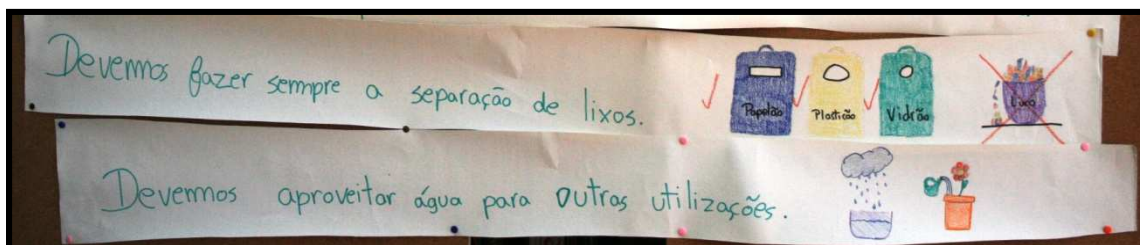 Devemos fazer sempre a separação de lixos.
Papelão Plasticão Vidrão Lixo
Devemos aproveitar água para outras utilizações.